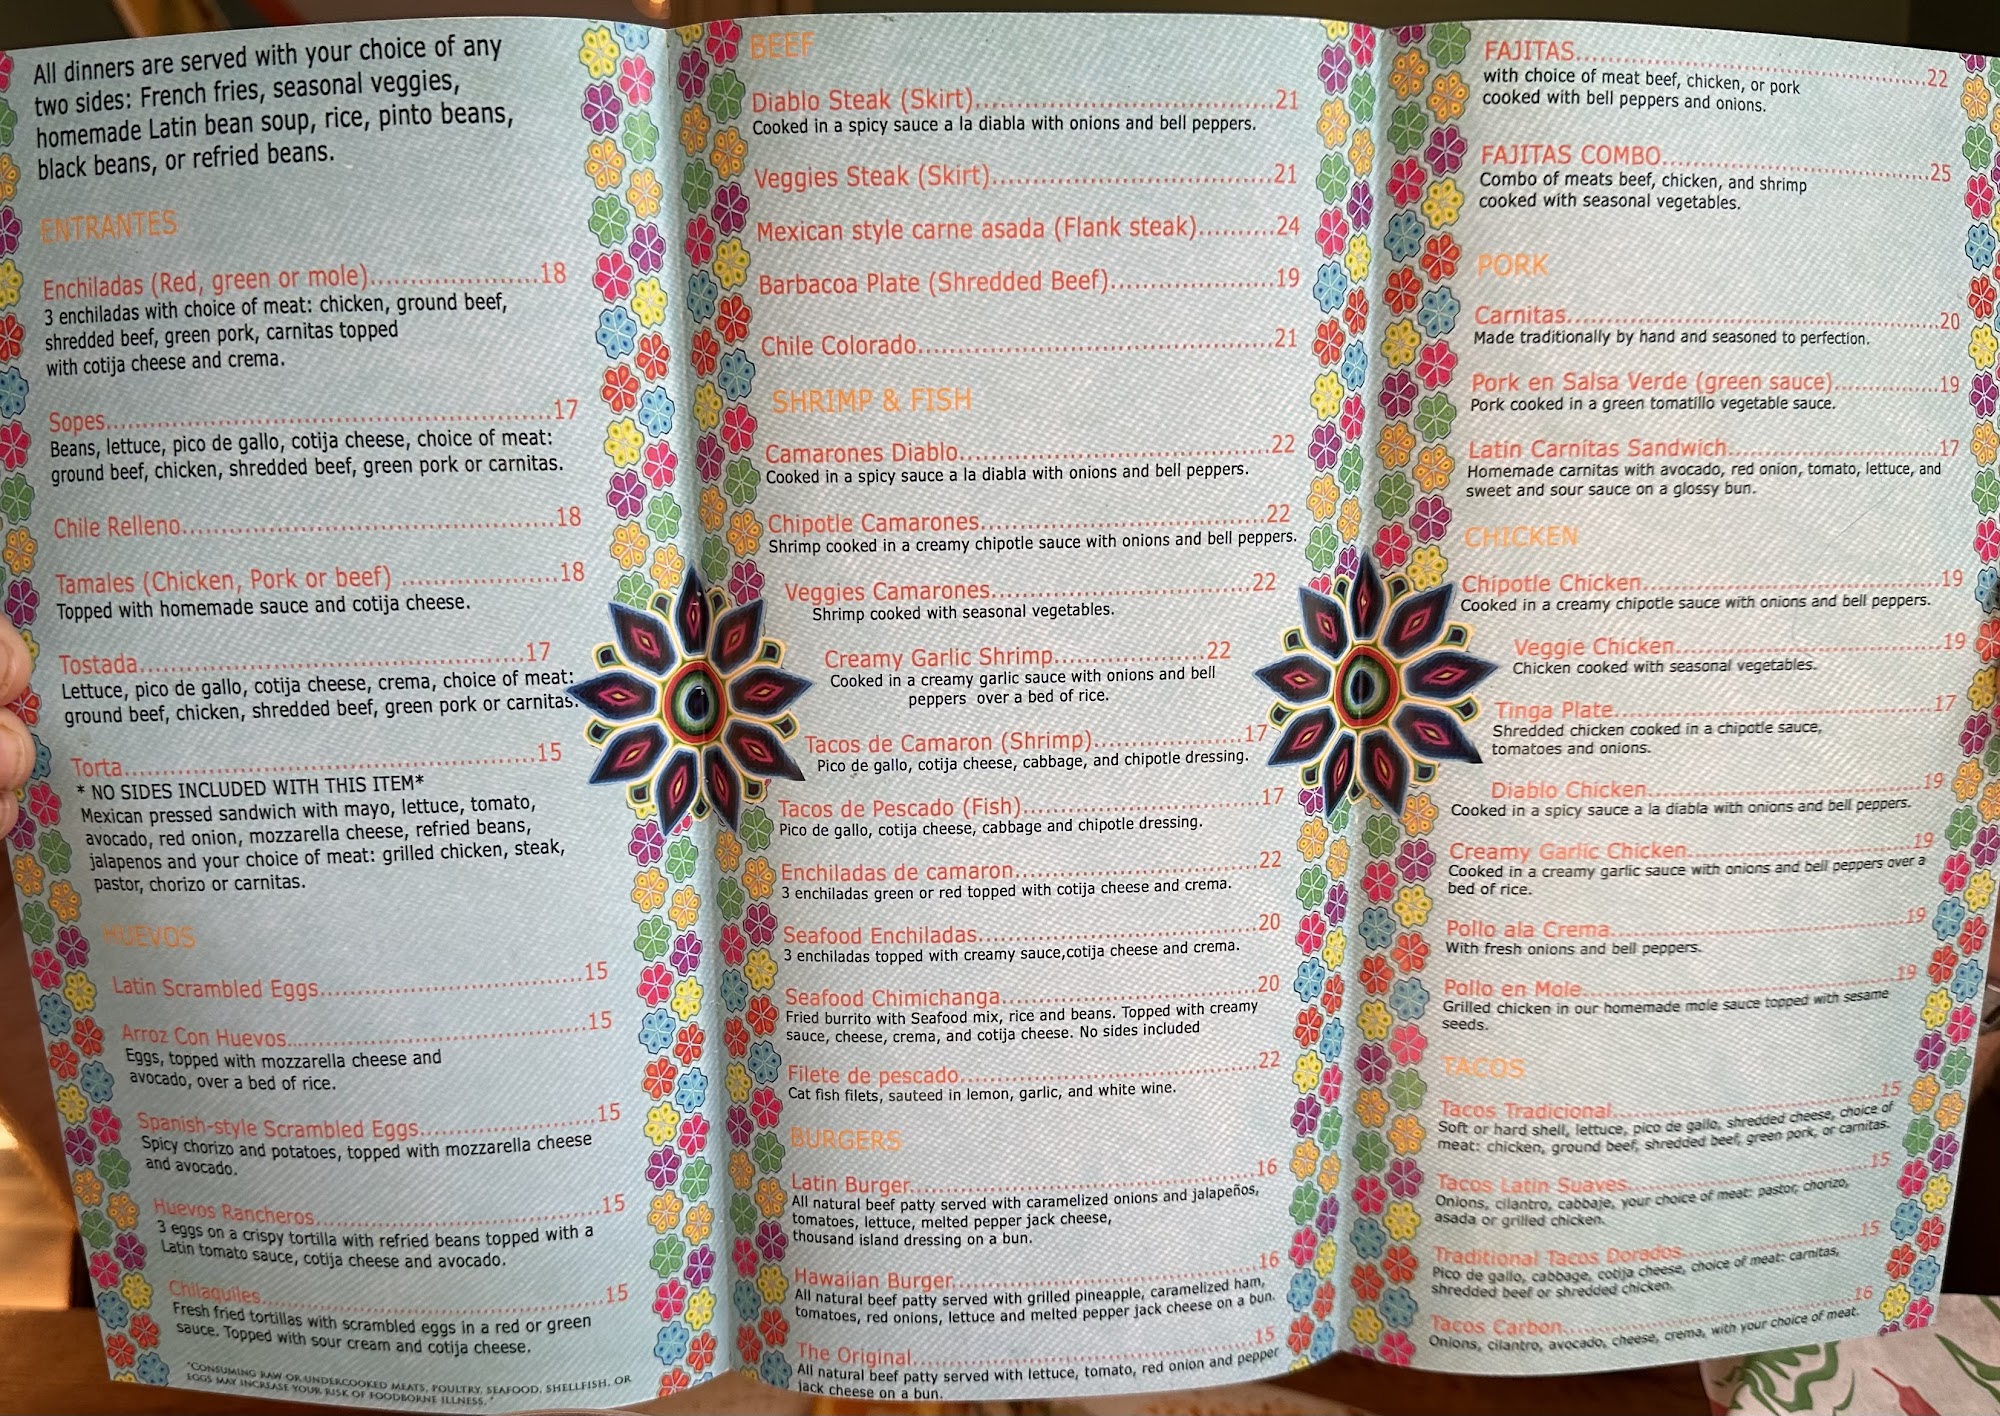 All dinners are served with your choice of any
two sides: French fries, seasonal veggies,
homemade Latin bean soup, rice, pinto beans,
black beans, or refried beans.
ENTRANTES
Enchiladas (Red, green or mole)..........18
3 enchiladas with choice of meat: chicken, ground beef,
shredded beef, green pork, carnitas topped
with cotija cheese and crema.
Sopes..........17
Beans, lettuce, pico de gallo, cotija cheese, choice of meat:
ground beef, chicken, shredded beef, green pork or carnitas.
Chile Relleno..........18
Tamales (Chicken, Pork or beef) ..........18
Topped with homemade sauce and cotija cheese.
Tostada..........17
Lettuce, pico de gallo, cotija cheese, crema, choice of meat:
ground beef, chicken, shredded beef, green pork or carnitas.
Torta..........15
* NO SIDES INCLUDED WITH THIS ITEM*
Mexican pressed sandwich with mayo, lettuce, tomato,
avocado, red onion, mozzarella cheese, refried beans,
jalapenos and your choice of meat: grilled chicken, steak,
pastor, chorizo or carnitas.
HUEVOS
Latin Scrambled Eggs..........15
Arroz Con Huevos..........15
Eggs, topped with mozzarella cheese and
avocado, over a bed of rice.
Spanish-style Scrambled Eggs..........15
Spicy chorizo and potatoes, topped with mozzarella cheese
and avocado.
Huevos Rancheros..........15
3 eggs on a crispy tortilla with refried beans topped with a
Latin tomato sauce, cotija cheese and avocado.
Chilaquiles..........15
Fresh fried tortillas with scrambled eggs in a red or green
sauce. Topped with sour cream and cotija cheese.
*CONSUMING RAW OR UNDERCOOKED MEATS, POULTRY, SEAFOOD, SHELLFISH, OR
EGGS MAY INCREASE YOUR RISK OF FOODBORNE ILLNESS. *
BEEF
Diablo Steak (Skirt)..........21
Cooked in a spicy sauce a la diabla with onions and bell peppers.
Veggies Steak (Skirt)..........21
Mexican style carne asada (Flank steak)..........24
Barbacoa Plate (Shredded Beef)..........19
Chile Colorado..........21
SHRIMP & FISH
Camarones Diablo..........22
Cooked in a spicy sauce a la diabla with onions and bell peppers.
Chipotle Camarones..........22
Shrimp cooked in a creamy chipotle sauce with onions and bell peppers.
Veggies Camarones..........22
Shrimp cooked with seasonal vegetables.
Creamy Garlic Shrimp..........22
Cooked in a creamy garlic sauce with onions and bell
peppers over a bed of rice.
Tacos de Camaron (Shrimp)..........17
Pico de gallo, cotija cheese, cabbage, and chipotle dressing.
Tacos de Pescado (Fish)..........17
Pico de gallo, cotija cheese, cabbage and chipotle dressing.
Enchiladas de camaron..........22
3 enchiladas green or red topped with cotija cheese and crema.
Seafood Enchiladas..........20
3 enchiladas topped with creamy sauce,cotija cheese and crema.
Seafood Chimichanga..........20
Fried burrito with Seafood mix, rice and beans. Topped with creamy
sauce, cheese, crema, and cotija cheese. No sides included
Filete de pescado..........22
Cat fish filets, sauteed in lemon, garlic, and white wine.
BURGERS
Latin Burger..........16
All natural beef patty served with caramelized onions and jalapeños,
tomatoes, lettuce, melted pepper jack cheese,
thousand island dressing on a bun.
Hawaiian Burger..........16
All natural beef patty served with grilled pineapple, caramelized ham,
tomatoes, red onions, lettuce and melted pepper jack cheese on a bun.
The Original..........15
All natural beef patty served with lettuce, tomato, red onion and pepper
jack cheese on a bun.
FAJITAS..........22
with choice of meat beef, chicken, or pork
cooked with bell peppers and onions.
FAJITAS COMBO..........25
Combo of meats beef, chicken, and shrimp
cooked with seasonal vegetables.
PORK
Carnitas..........20
Made traditionally by hand and seasoned to perfection.
Pork en Salsa Verde (green sauce)..........19
Pork cooked in a green tomatillo vegetable sauce.
Latin Carnitas Sandwich..........17
Homemade carnitas with avocado, red onion, tomato, lettuce, and
sweet and sour sauce on a glossy bun.
CHICKEN
Chipotle Chicken..........19
Cooked in a creamy chipotle sauce with onions and bell peppers.
Veggie Chicken..........19
Chicken cooked with seasonal vegetables.
Tinga Plate..........17
Shredded chicken cooked in a chipotle sauce,
tomatoes and onions.
Diablo Chicken..........19
Cooked in a spicy sauce a la diabla with onions and bell peppers.
Creamy Garlic Chicken..........19
Cooked in a creamy garlic sauce with onions and bell peppers over a
bed of rice.
Pollo ala Crema..........19
With fresh onions and bell peppers.
Pollo en Mole..........19
Grilled chicken in our homemade mole sauce topped with sesame
seeds.
TACOS
Tacos Tradicional..........15
Soft or hard shell, lettuce, pico de gallo, shredded cheese, choice of
meat: chicken, ground beef, shredded beef, green pork, or carnitas.
Tacos Latin Suaves..........15
Onions, cilantro, cabbaje, your choice of meat: pastor, chorizo,
asada or grilled chicken.
Traditional Tacos Dorados..........15
Pico de gallo, cabbage, cotija cheese, choice of meat: carnitas,
shredded beef or shredded chicken.
Tacos Carbon..........16
Onions, cilantro, avocado, cheese, crema, with your choice of meat.